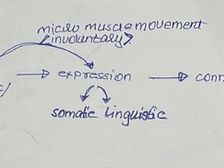 micro muscle movement
(involuntary)
expression
somatic linguistic